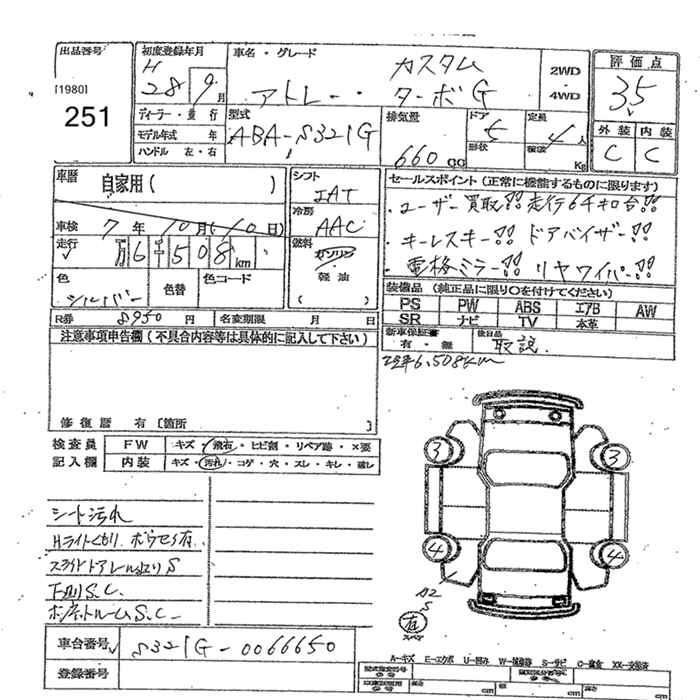 出品番号 初度登録年月 車名・グレード 評価点
[1980] H 28 9月 アトレー・ カスタム ターボG 2WD・4WD 3.5
251
ディーラー・並行 型式 排気量 ドア 5 定員 4人 外装 内装
モデル年式 年 ABA-S321G 660cc 形状 積載 Kg C C
ハンドル 左・右
車歴 自家用( ) シフト IAT セールスポイント(正常に機能するものに限ります)
冷房 AAC ・ユーザー買取!! 走行6千キロ台!!
車検 7年10月(10日) ・キーレスキー!! ドアバイザー!!
走行 万6千508km 燃料 ガソリン 軽油 ・電格ミラー!! リヤワイパー!!
色 シルバー 色替 色コード 装備品(純正品に限り○を付けてください)
PS PW ABS エアB AW
R券 8950円 名変期限 月 日 SR ナビ TV 本革
注意事項申告欄(不具合内容等は具体的に記入して下さい) 新車保証書 有・無 後日品 取説
6,508km
修復歴 有[箇所 ]
検査員 FW キズ・飛石・ヒビ割・リペア跡・×要
記入欄 内装 キズ・汚れ・コゲ・穴・スレ・キレ・破レ
3 3
シート汚れ
Hライトくもり、 4 4
スライドドアレール S
下回りS.C. A2 S
ボンネットルームS.C. 右 スペア
車台番号 S321G-0066650
登録番号
A-キズ E-エクボ U-凹み W-補修跡 S-サビ C-腐食 XX-交換済
cm cm cm